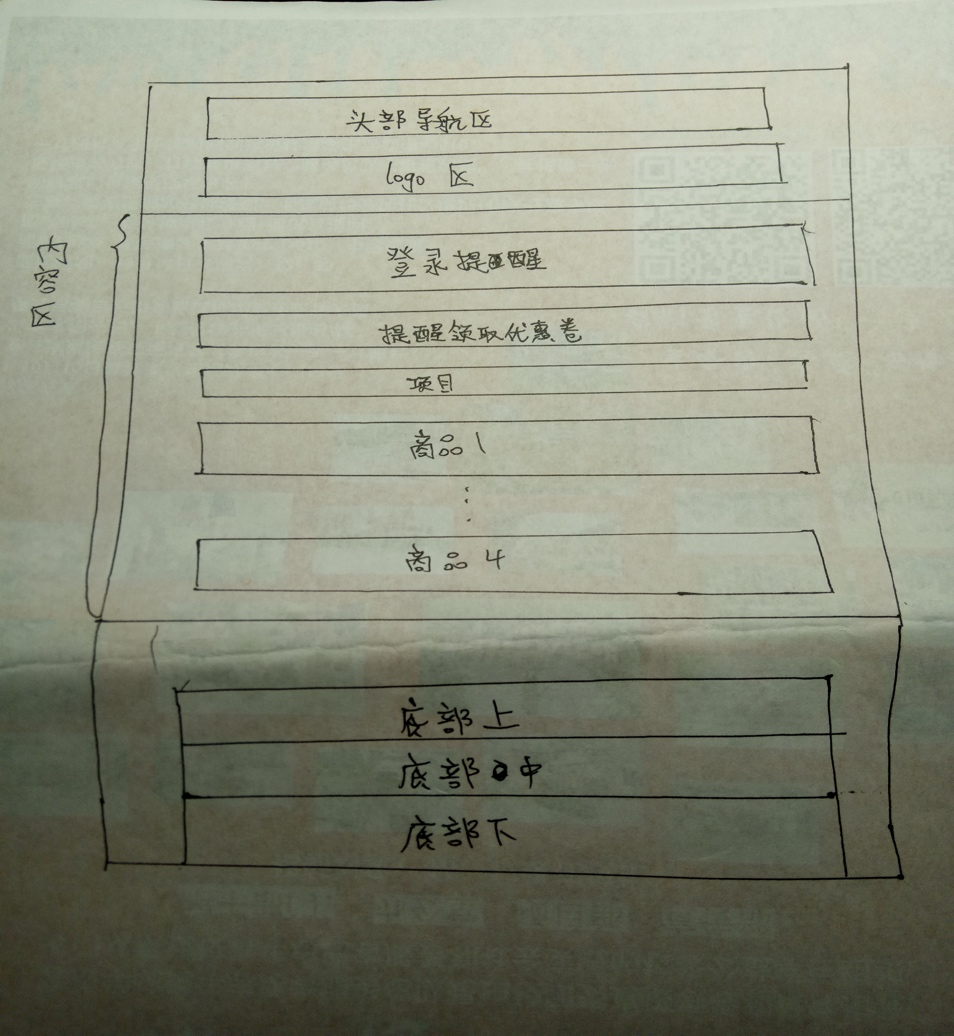 头部导航区
logo 区
内容区
登录提醒
提醒领取优惠卷
项目
商品1
⋮
商品4
底部上
底部中
底部下